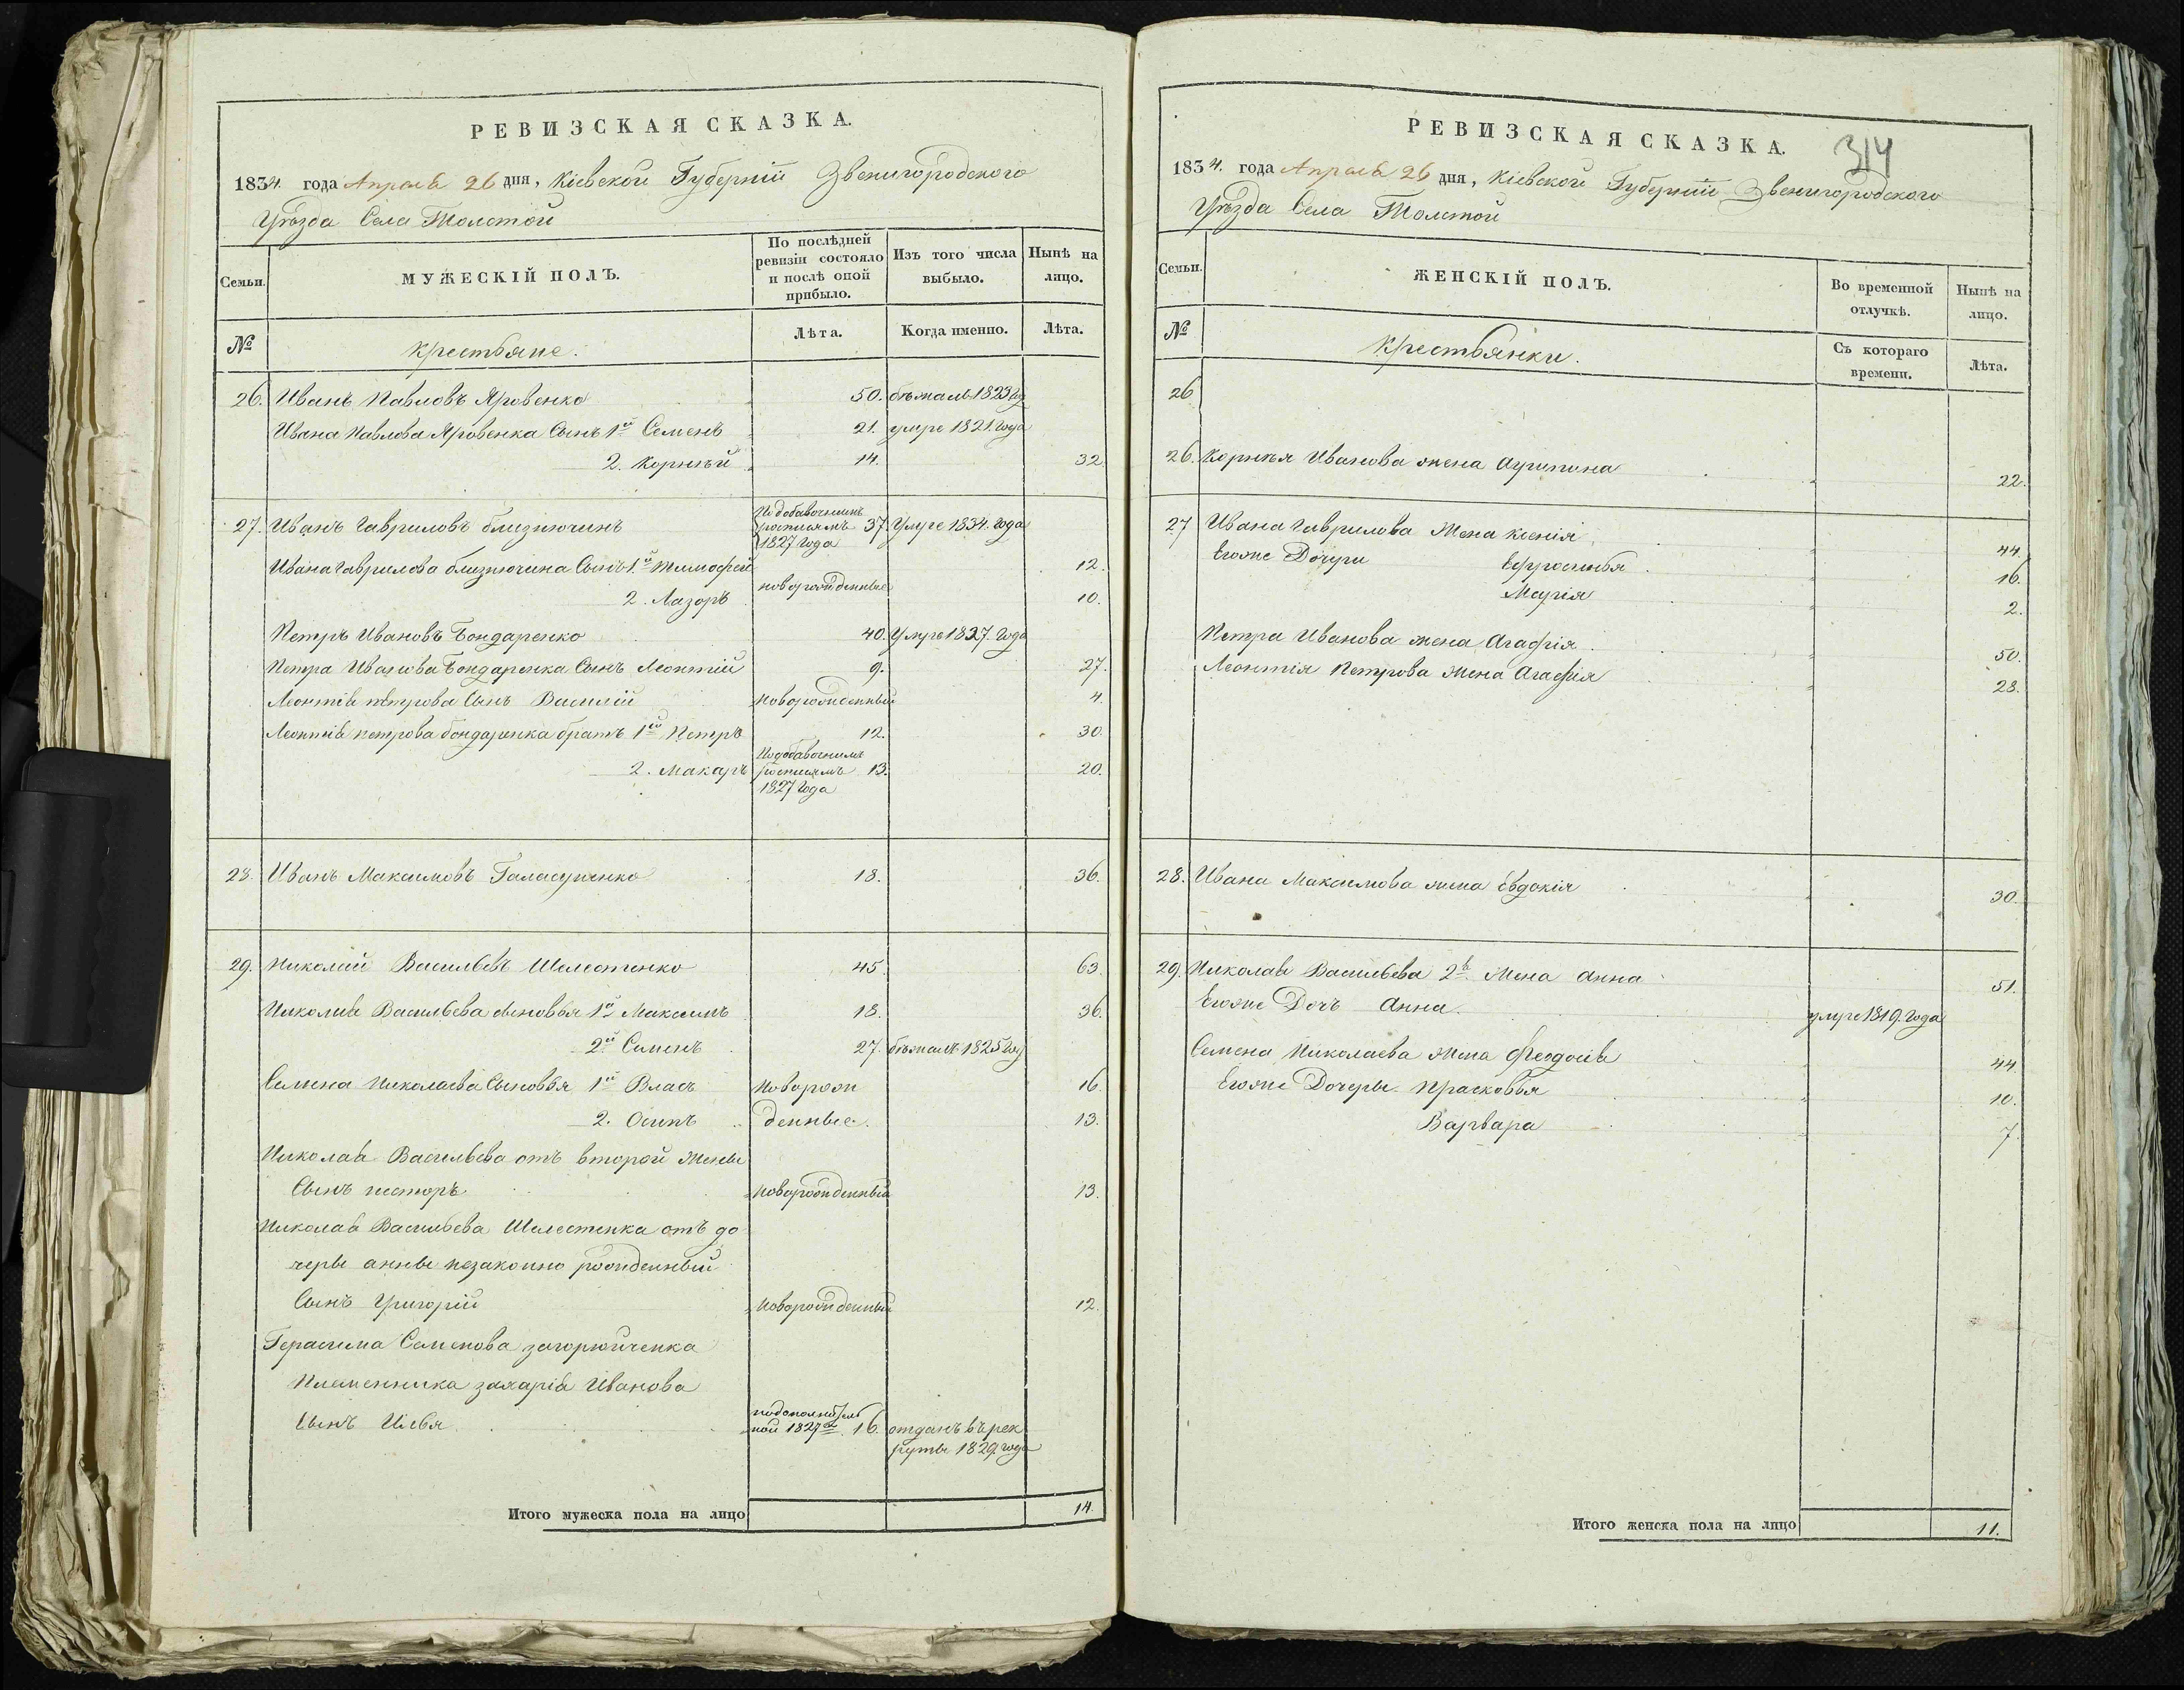 РЕВИЗСКАЯ СКАЗКА.
1834. года Апреля 26 дня, Кіевской Губерніи Звенигородского
Уѣзда Села Толстой
Семьи.
МУЖЕСКІЙ ПОЛЪ.
По послѣдней ревизіи состояло и послѣ оной прибыло.
Изъ того числа выбыло.
Нынѣ на лицо.
№
Крестьяне.
Лѣта.
Когда именно.
Лѣта.
26. Иванъ Павловъ Яровенко 50. бѣжалъ 1823 год
Ивана Павлова Яровенка Сынъ 1й Семенъ 21. умре 1821. года
2. Корнѣй 14. 32.
27. Иванъ Гавриловъ близнючинъ По добавочнымъ росписямъ 1827 года 37. Умре 1834. года
Ивана Гаврилова близнючина Сынъ 1.й Тимофей 12.
новорожденные
2. Лазоръ 10.
Петръ Ивановъ Бондаренко 40. Умре 1827. года
Петра Иванова Бондаренка Сынъ Леонтій 9. 27.
Леонтія петрова Сынъ Василій новорожденный 4.
Леонтія петрова бондаренка братъ 1й Петръ 12. 30.
2. Макаръ По добавочнымъ росписямъ 1827 года 13. 20.
28. Иванъ Максимовъ 18. 36.
29. Николай Васильевъ Шелестенко 45. 63.
Николая Васильева сыновья 1й Максимъ 18. 36.
2й Семенъ 27. бѣжалъ 1825 год
Семена Николаева Сыновья 1й Власъ Новорож 16.
2. Осипъ денные. 13.
Николая Васильева отъ второй жены
Сынъ несторъ новорожденный 13.
Николая Васильева Шелестенка отъ до
черы анны незаконно рожденный
Сынъ Григорій новорожденный 12.
Герасима Семенова загорюйченка
Племенника захарія Иванова
Сынъ Илья по дополнитель ной 1827го 16. отданъ въ рек
руты 1829. года
Итого мужеска пола на лицо 14.
314
РЕВИЗСКАЯ СКАЗКА.
1834. года Апреля 26 дня, Кіевской Губерніи Звенигородского
Уѣзда Села Толстой
Семьи.
ЖЕНСКІЙ ПОЛЪ.
Во временной отлучкѣ.
Нынѣ на лицо.
№
Крестьянки.
Съ котораго времени.
Лѣта.
26
26. Корнѣя Иванова жена Агрипина 22.
27 Ивана Гаврилова Жена Ксенія 44.
Егоже Дочери Ефросинья 16.
Марія 2.
Петра Иванова жена Агафія 50.
Леонтія Петрова жена Агафія 28.
28. Ивана Максимова жена Евдокія 30.
29. Николая Васильева 2я Жена Анна 51.
Егоже Дочъ Анна. умре 1819. года
Семена Николаева Жена Феодосія 44.
Егоже Дочеры Прасковья 10.
Варвара 7.
Итого женска пола на лицо 11.